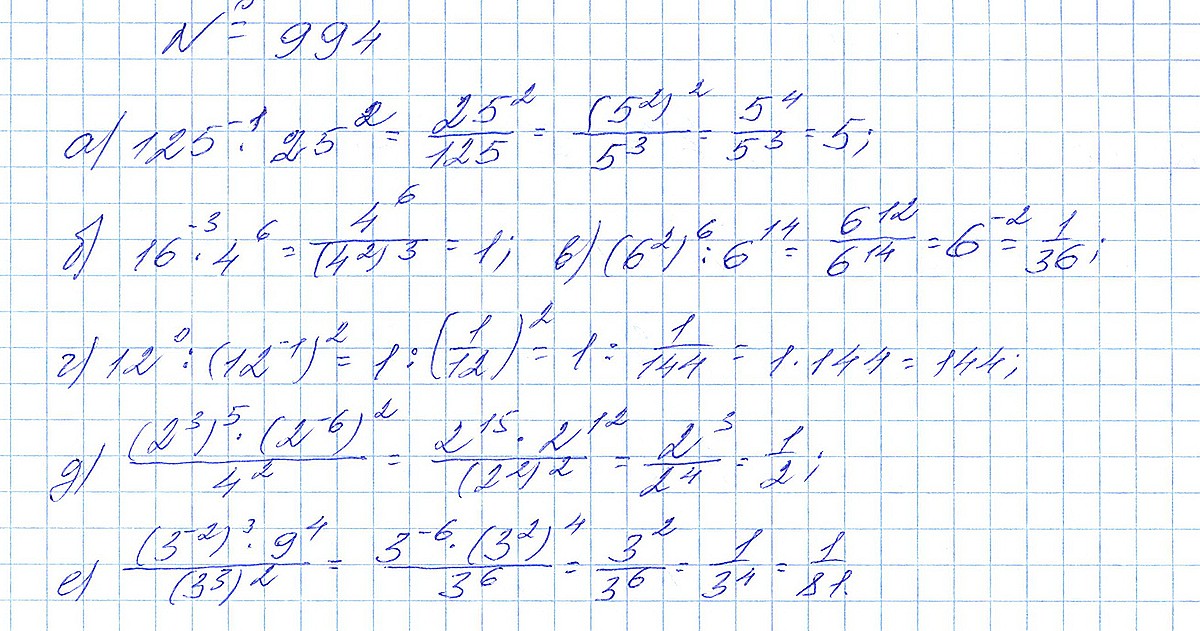 № 994
а) 125⁻¹ · 25² = 25²/125 = (5²)²/5³ = 5⁴/5³ = 5;
б) 16⁻³ · 4⁶ = 4⁶/(4²)³ = 1; в) (6²)⁶ : 6¹⁴ = 6¹²/6¹⁴ = 6⁻² = 1/36;
г) 12⁰ : (12⁻¹)² = 1 : (1/12)² = 1 : 1/144 = 1 · 144 = 144;
д) (2³)⁵ · (2⁻⁶)²/4² = 2¹⁵ · 2¹²/(2²)² = 2³/2⁴ = 1/2;
е) (3⁻²)³ · 9⁴/(3³)² = 3⁻⁶ · (3²)⁴/3⁶ = 3²/3⁶ = 1/3⁴ = 1/81.